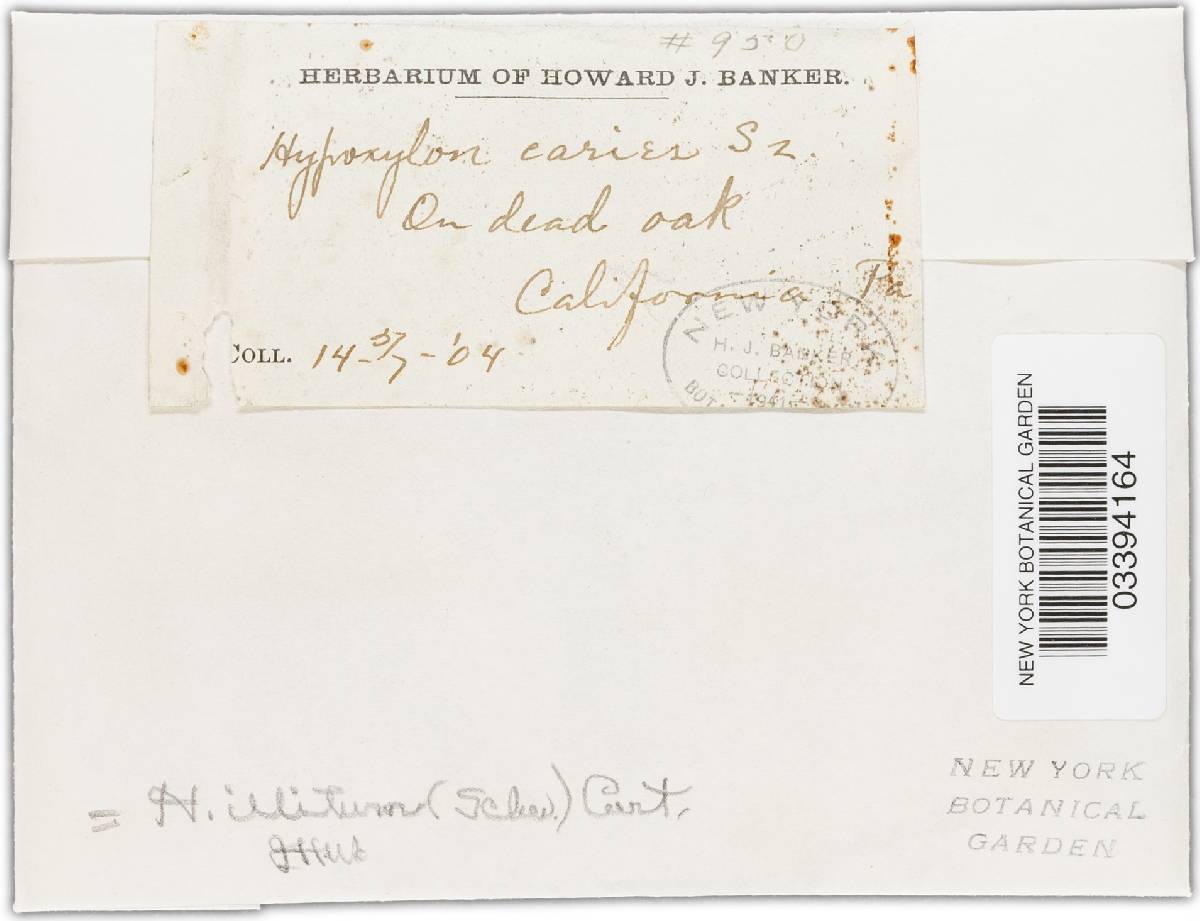 # 950
HERBARIUM OF HOWARD J. BANKER.
Hypoxylon caries Sz.
On dead oak
California Pa
COLL. 14-5/7-'04
NEW YORK
H. J. BANKER
COLLECTION
BOT. 1941
NEW YORK BOTANICAL GARDEN
03394164
= H. illitum (Schw.) Curt.
NEW YORK
BOTANICAL
GARDEN